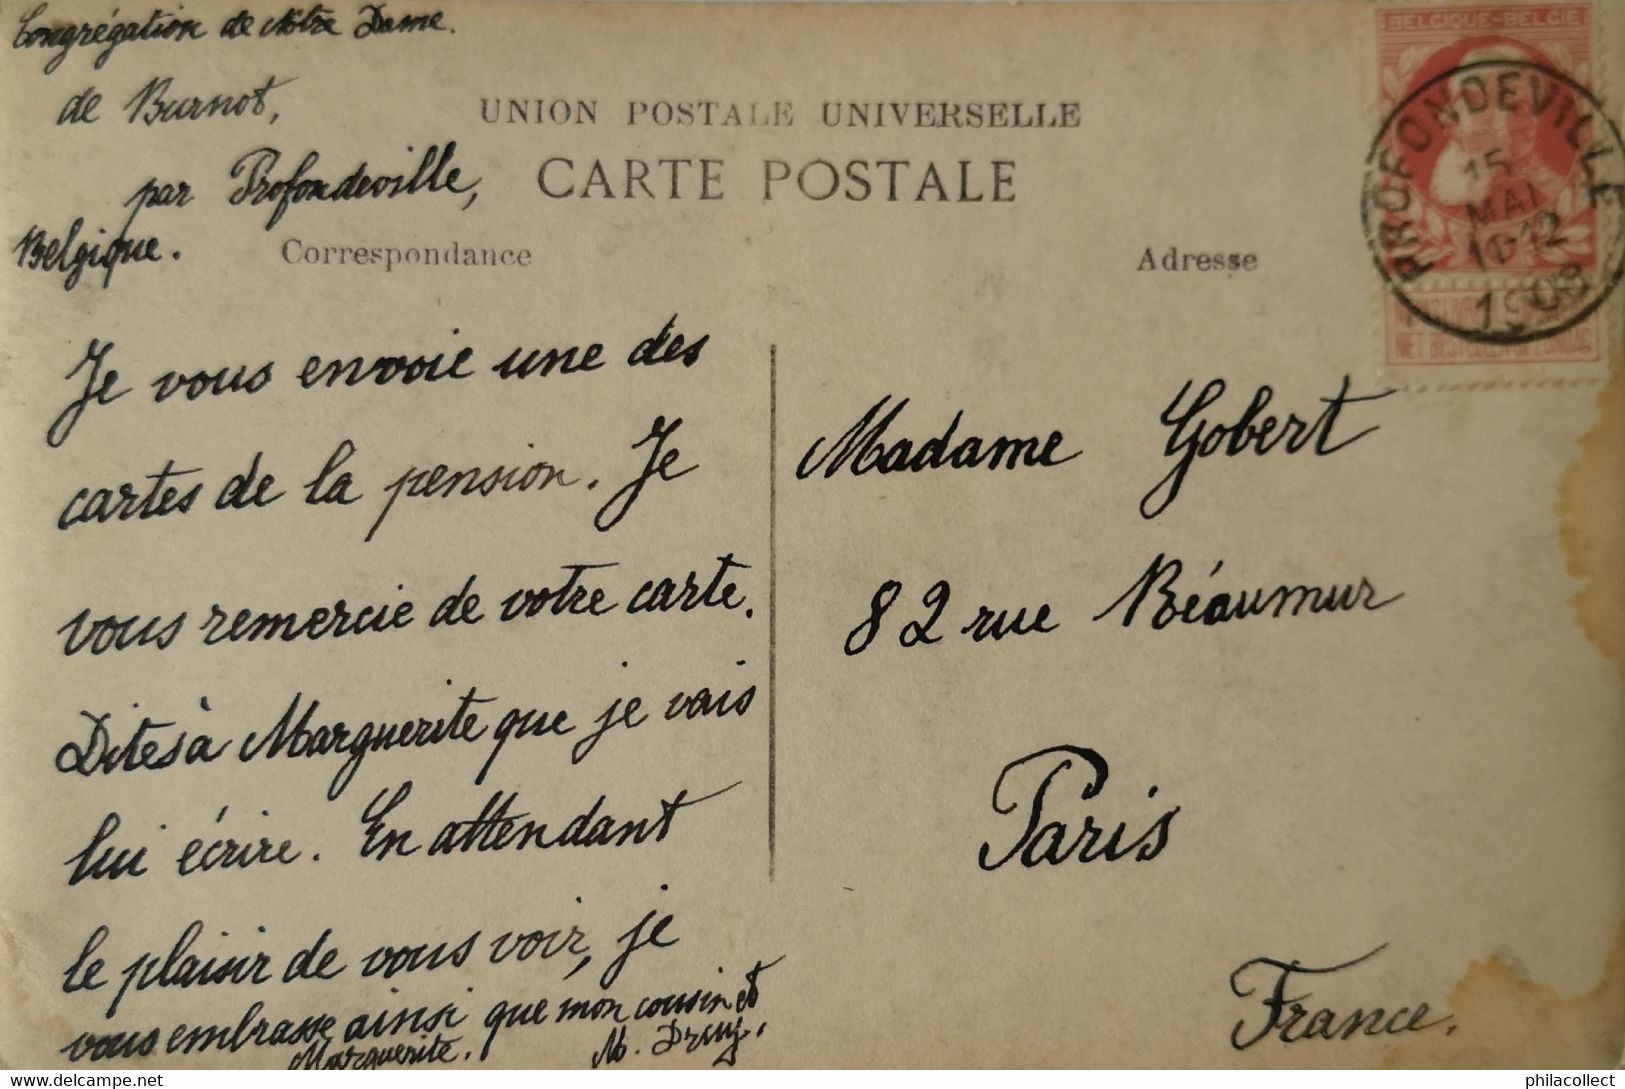 Congrégation de Notre Dame.
de Burnot,
par Profondeville,
Belgique.
UNION POSTALE UNIVERSELLE
CARTE POSTALE
Correspondance
Adresse
BELGIQUE-BELGIE
PROFONDEVILLE
15
MAI
11-12
1908
Je vous envoie une des
cartes de la pension. Je
vous remercie de votre carte.
Dites à Marguerite que je vais
lui écrire. En attendant
le plaisir de vous voir, je
vous embrasse ainsi que mon cousin et
Marguerite. M.
Madame Gobert
82 rue Béaumur
Paris
France.
© Delcampe.net
philacollect